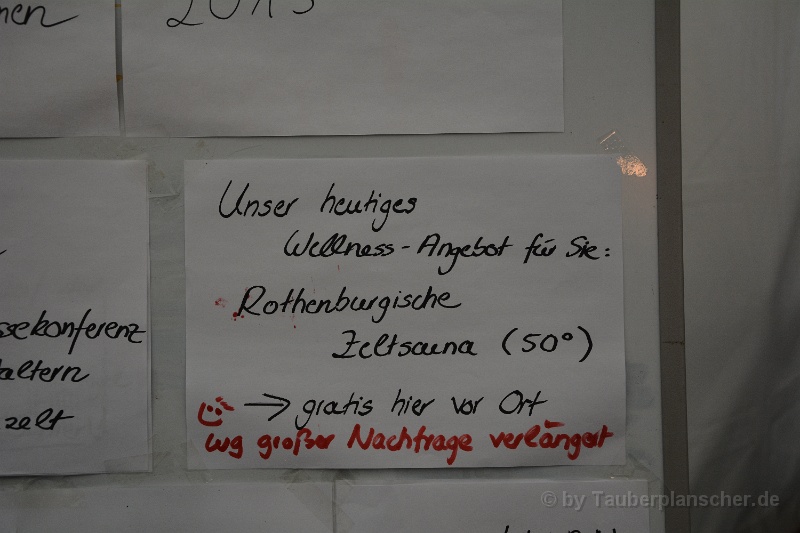 2013
Unser heutiges
Wellness-Angebot für Sie:
Rothenburgische
Zeltsauna (50°)
→ gratis hier vor Ort
wg großer Nachfrage verlängert
sekonferenz
altern
zelt
© by Tauberplanscher.de